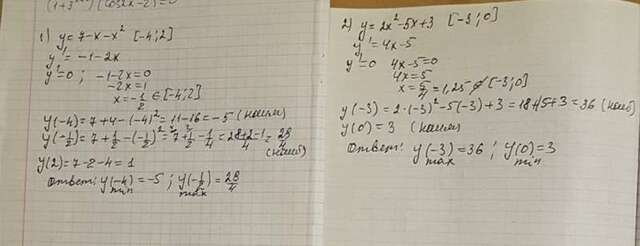 1) y=7-x-x² [-4;2]
y'=-1-2x
y'=0; -1-2x=0
-2x=1
x=-1/2 ∈[-4;2]
y(-4)=7+4-(-4)²=11-16=-5 (наим)
y(-1/2)=7+1/2-(-1/2)²=7+1/2-1/4=
(наиб)
y(2)=7-2-4=1
Ответ: y(-4)=-5; y(-1/2)=28/4
min max
2) y=2x²-5x+3 [-3;0]
y'=4x-5
y'=0 4x-5=0
4x=5
x=5/4=1,25 ∉[-3;0]
y(-3)=2·(-3)²-5(-3)+3=18+15+3=36 (наиб)
y(0)=3 (наим)
Ответ: y(-3)=36; y(0)=3
max min